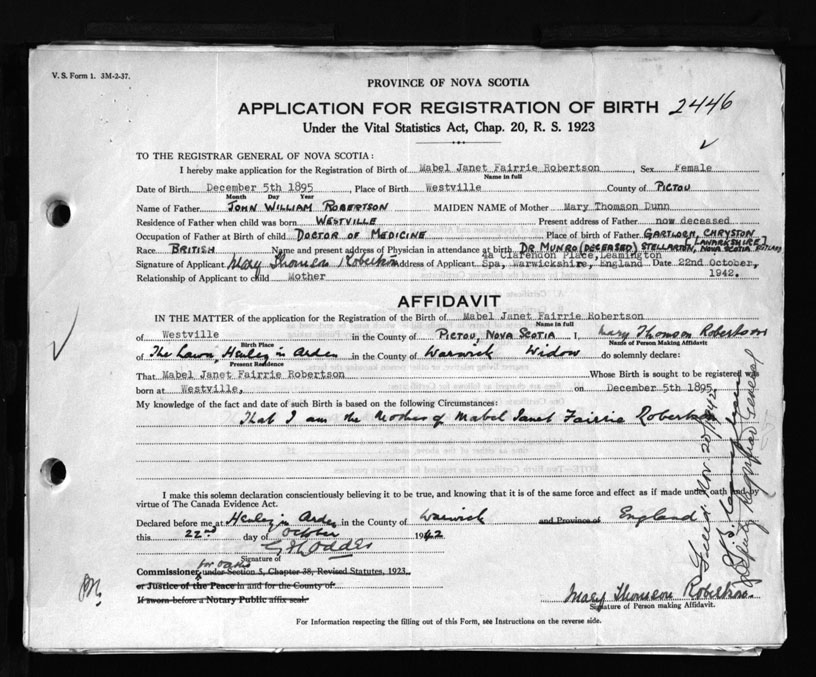 V. S. Form 1. 3M-2-37.
PROVINCE OF NOVA SCOTIA
APPLICATION FOR REGISTRATION OF BIRTH 2446
Under the Vital Statistics Act, Chap. 20, R. S. 1923
TO THE REGISTRAR GENERAL OF NOVA SCOTIA:
I hereby make application for the Registration of Birth of Mabel Janet Fairrie Robertson, Sex Female
Name in full
Date of Birth December 5th 1895, Place of Birth Westville County of PICTOU
Month Day Year
Name of Father JOHN WILLIAM ROBERTSON MAIDEN NAME of Mother Mary Thomson Dunn
Residence of Father when child was born WESTVILLE Present address of Father now deceased
Occupation of Father at Birth of child DOCTOR OF MEDICINE Place of birth of Father GARTLOCH, CHRYSTON
[LANARKSHIRE]
Race BRITISH Name and present address of Physician in attendance at birth DR MUNRO (DECEASED) STELLARTON, NOVA SCOTIA
4a Clarendon Place, Leamington
Signature of Applicant Mary Thomson Robertson Address of Applicant Spa, Warwickshire, England Date 22nd October,
Relationship of Applicant to child Mother 1942.
AFFIDAVIT
IN THE MATTER of the application for the Registration of the Birth of Mabel Janet Fairrie Robertson
Name in full
of Westville in the County of PICTOU, NOVA SCOTIA I, Mary Thomson Robertson
Birth Place Name of Person Making Affidavit
of The Lawn, Henley in Arden in the County of Warwick Widow do solemnly declare:
Present Residence
That Mabel Janet Fairrie Robertson Whose Birth is sought to be registered was
born at Westville, on December 5th 1895.
My knowledge of the fact and date of such Birth is based on the following Circumstances:
That I am the Mother of Mabel Janet Fairrie Robertson
I make this solemn declaration conscientiously believing it to be true, and knowing that it is of the same force and effect as if made under oath and by
virtue of The Canada Evidence Act.
Declared before me at Henley in Arden in the County of Warwick and Province of England
this 22nd day of October 1942
Signature of
for oaths
Commissioner under Section 5, Chapter 38, Revised Statutes, 1923
or Justice of the Peace in and for the County of
If sworn before a Notary Public affix seal
Mary Thomson Robertson.
Signature of Person making Affidavit.
For Information respecting the filling out of this Form, see Instructions on the reverse side.
Deputy Registrar General